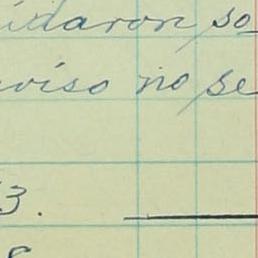 idaron so
viso no se
3.